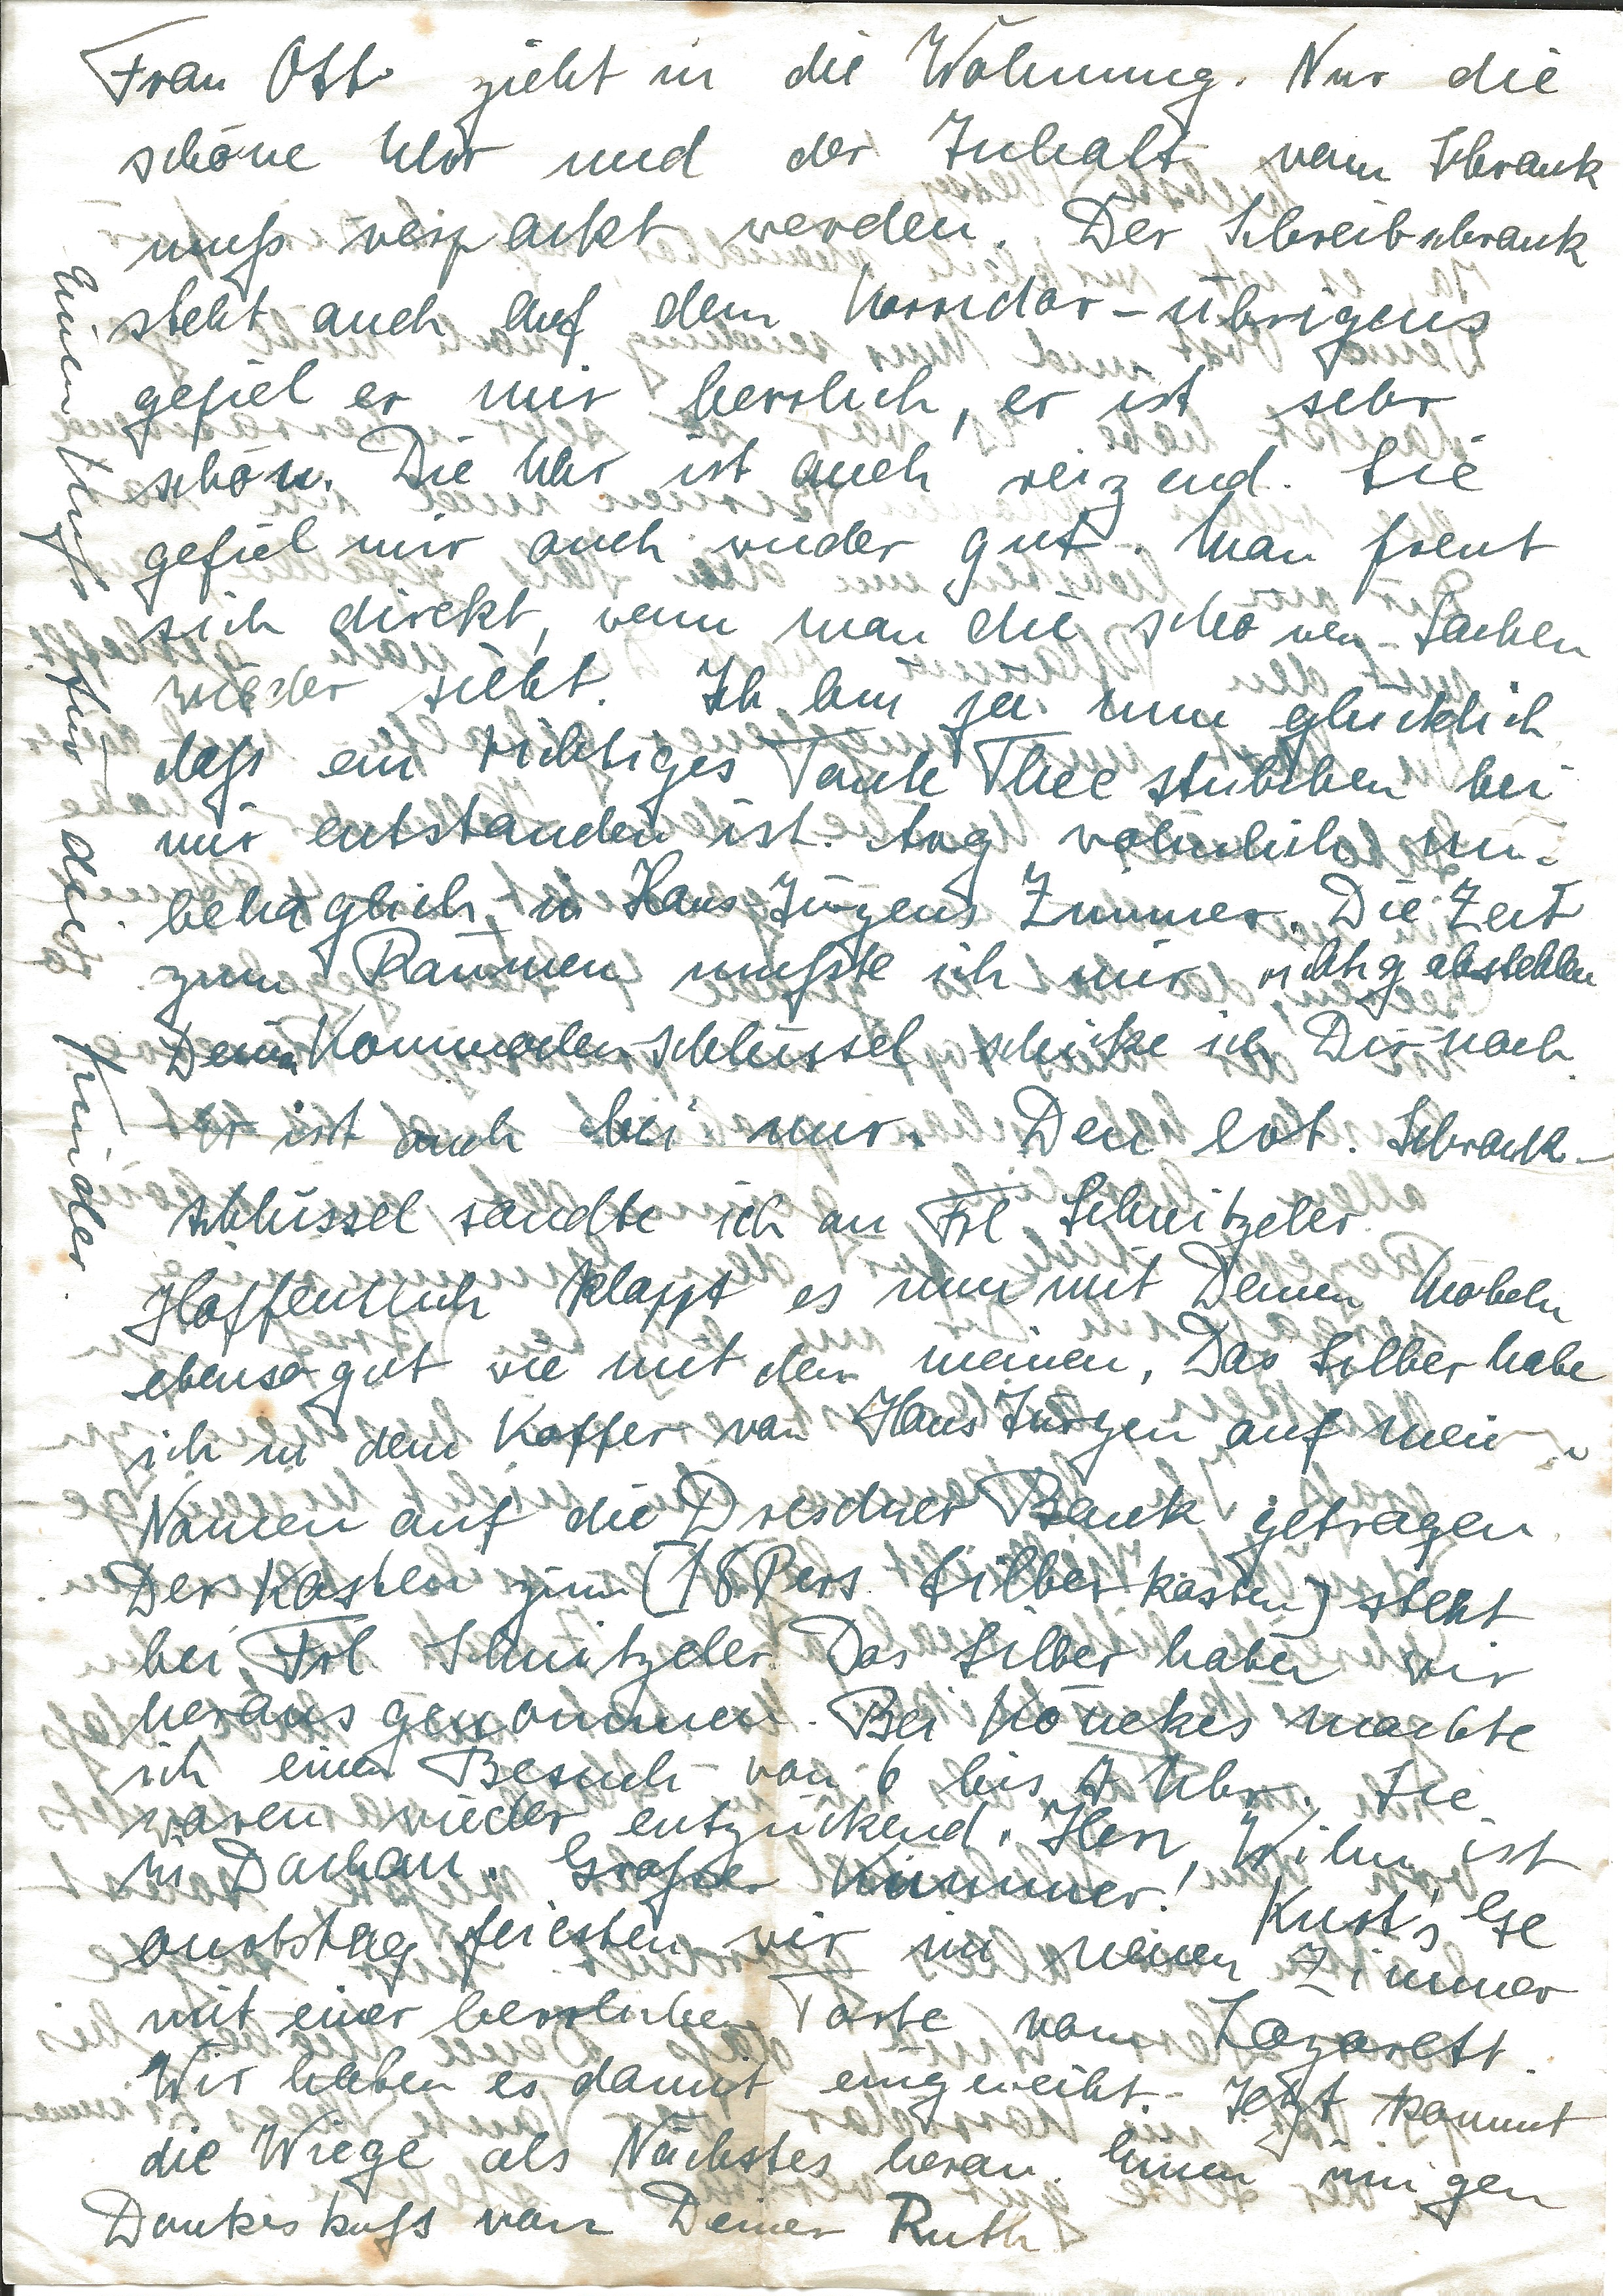 Frau Otto zieht in die Wohnung. Nur die
schöne Uhr und der Inhalt vom Schrank
muß verpackt werden. Der Schreibschrank
steht auch auf dem Korridor - übrigens
gefiel er mir herrlich, er ist sehr
schön. Die Uhr ist auch reizend. Sie
gefiel mir auch wieder gut. Man freut
sich direkt, wenn man die schönen Sachen
wieder sieht. Ich bin ja nun glücklich
daß ein richtiges Tante Thee stübchen bei
mir entstanden ist. wöhnlich
behaglich in Hans-Jürgens Zimmer. Die Zeit
zum Räumen mußte ich mir richtig abstehlen
Deinen Kommoden-schlüssel schicke ich Dir noch.
Er ist auch bei mir. Den Schrank-
schlüssel sandte ich an Frl Schnitzeler.
Hoffentlich klappt es nun mit Deinen Möbeln
ebenso gut wie mit den meinen. Das Silber habe
ich in dem Koffer von Hans Jürgen auf mein
Namen auf die Dresdner Bank getragen.
Der Kasten zum (18 Pers. Silberkasten) steht
bei Frl. Schnitzeler. Das Silber haben wir
heraus genommen. Bei Könekes machte
ich einen Besuch von 6 bis 7 Uhr. Sie
waren wieder entzückend. Herr Wilm ist
in Dachau. Großer Kummer! Kurt's Ge
burtstag feierten wir in meinem Zimmer
mit einer herrlichen Torte vom Lazarett.
Wir haben es damit eingeweiht. - Jetzt kommt
die Wiege als Nächstes heran. Einen innigen
Dankeskuß von Deiner Ruth
Einen Kuß für die Kinder.